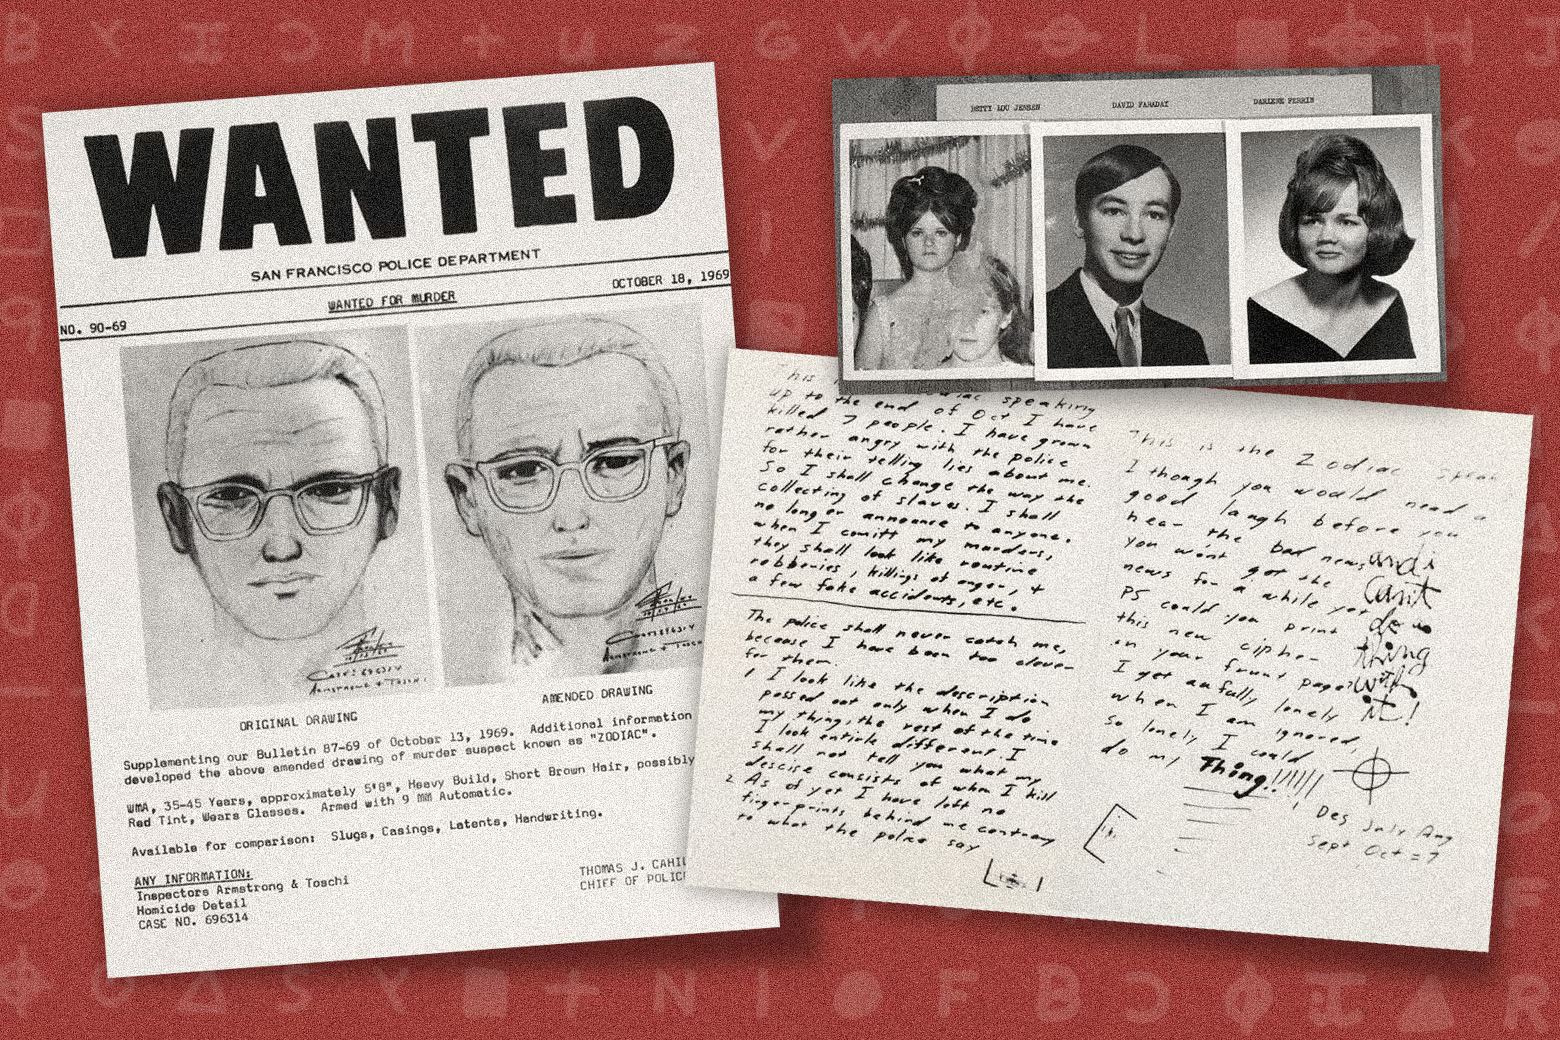 WANTED
SAN FRANCISCO POLICE DEPARTMENT
NO. 90-69
WANTED FOR MURDER
OCTOBER 18, 1969
ORIGINAL DRAWING
AMENDED DRAWING
Supplementing our Bulletin 87-69 of October 13, 1969. Additional information
developed the above amended drawing of murder suspect known as "ZODIAC".
WMA, 35-45 Years, approximately 5'8", Heavy Build, Short Brown Hair, possibly
Red Tint, Wears Glasses. Armed with 9 MM Automatic.
Available for comparison: Slugs, Casings, Latents, Handwriting.
ANY INFORMATION:
Inspectors Armstrong & Toschi
Homicide Detail
CASE NO. 696314
THOMAS J. CAHIL
CHIEF OF POLIC
BETTY LOU JENSEN
DAVID FARADAY
DARLENE FERRIN
speaking
up to the end of Oct I have
killed 7 people. I have grown
rather angry with the police
for their telling lies about me.
So I shall change the way the
collecting of slaves. I shall
no longer announce to anyone.
when I comitt my murders,
they shall look like routine
robberies, killings of anger, +
a few fake accidents, etc.
The police shall never catch me,
because I have been too clever
for them.
1 I look like the description
passed out only when I do
my thing, the rest of the time
I look entirle different. I
shall not tell you what my
descise consists of when I kill
2 As of yet I have left no
fingerprints behind me contrary
to what the police say
This is the Zodiac speak
I though you would need a
good laugh before you
hear the bad news
you won't get the
news for a while yet
PS could you print
this new cipher
in your frunt page?
I get awfully lonely
when I am ignored,
so lonely I could
do my Thing!!!!!!
and i
cant
do a
thing
with
it!
Des July Aug
Sept Oct = 7